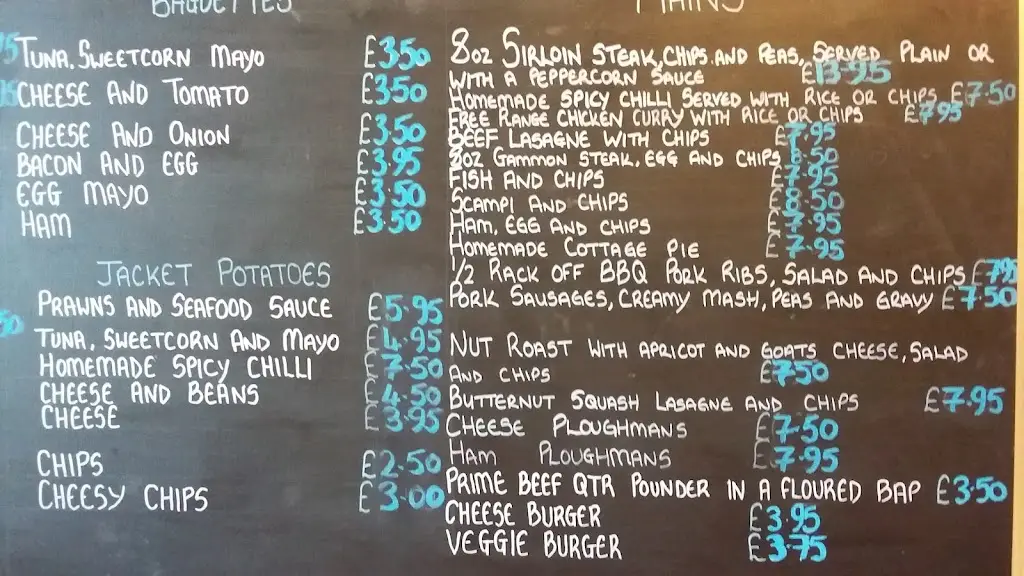 BAGUETTES
TUNA, SWEETCORN MAYO £3.50
CHEESE AND TOMATO £3.50
CHEESE AND ONION £3.50
BACON AND EGG £3.95
EGG MAYO £3.50
HAM £3.50
JACKET POTATOES
PRAWNS AND SEAFOOD SAUCE £5.95
TUNA, SWEETCORN AND MAYO £4.95
HOMEMADE SPICY CHILLI £7.50
CHEESE AND BEANS £4.50
CHEESE £3.95
CHIPS £2.50
CHEESY CHIPS £3.00
MAINS
8oz SIRLOIN STEAK, CHIPS AND PEAS, SERVED PLAIN OR
WITH A PEPPERCORN SAUCE £13.95
HOMEMADE SPICY CHILLI SERVED WITH RICE OR CHIPS £7.50
FREE RANGE CHICKEN CURRY WITH RICE OR CHIPS £7.95
BEEF LASAGNE WITH CHIPS £7.95
8oz GAMMON STEAK, EGG AND CHIPS £8.50
FISH AND CHIPS £7.95
SCAMPI AND CHIPS £8.50
HAM, EGG AND CHIPS £7.95
HOMEMADE COTTAGE PIE £7.95
1/2 RACK OFF BBQ PORK RIBS, SALAD AND CHIPS £7.95
PORK SAUSAGES, CREAMY MASH, PEAS AND GRAVY £7.50
NUT ROAST WITH APRICOT AND GOATS CHEESE, SALAD
AND CHIPS £7.50
BUTTERNUT SQUASH LASAGNE AND CHIPS £7.95
CHEESE PLOUGHMANS £7.50
HAM PLOUGHMANS £7.95
PRIME BEEF QTR POUNDER IN A FLOURED BAP £3.50
CHEESE BURGER £3.95
VEGGIE BURGER £3.75